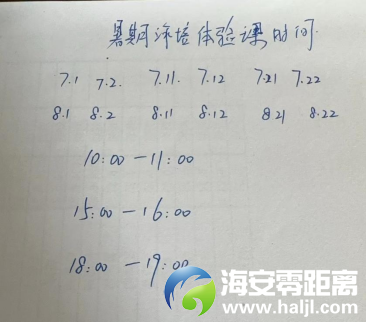 暑期评培体验课时间
7.1 7.2. 7.11. 7.12 7.21 7.22
8.1 8.2 8.11 8.12 8.21 8.22
10:00-11:00
15:00-16:00
18:00-19:00
海安零距离
www.haljl.com